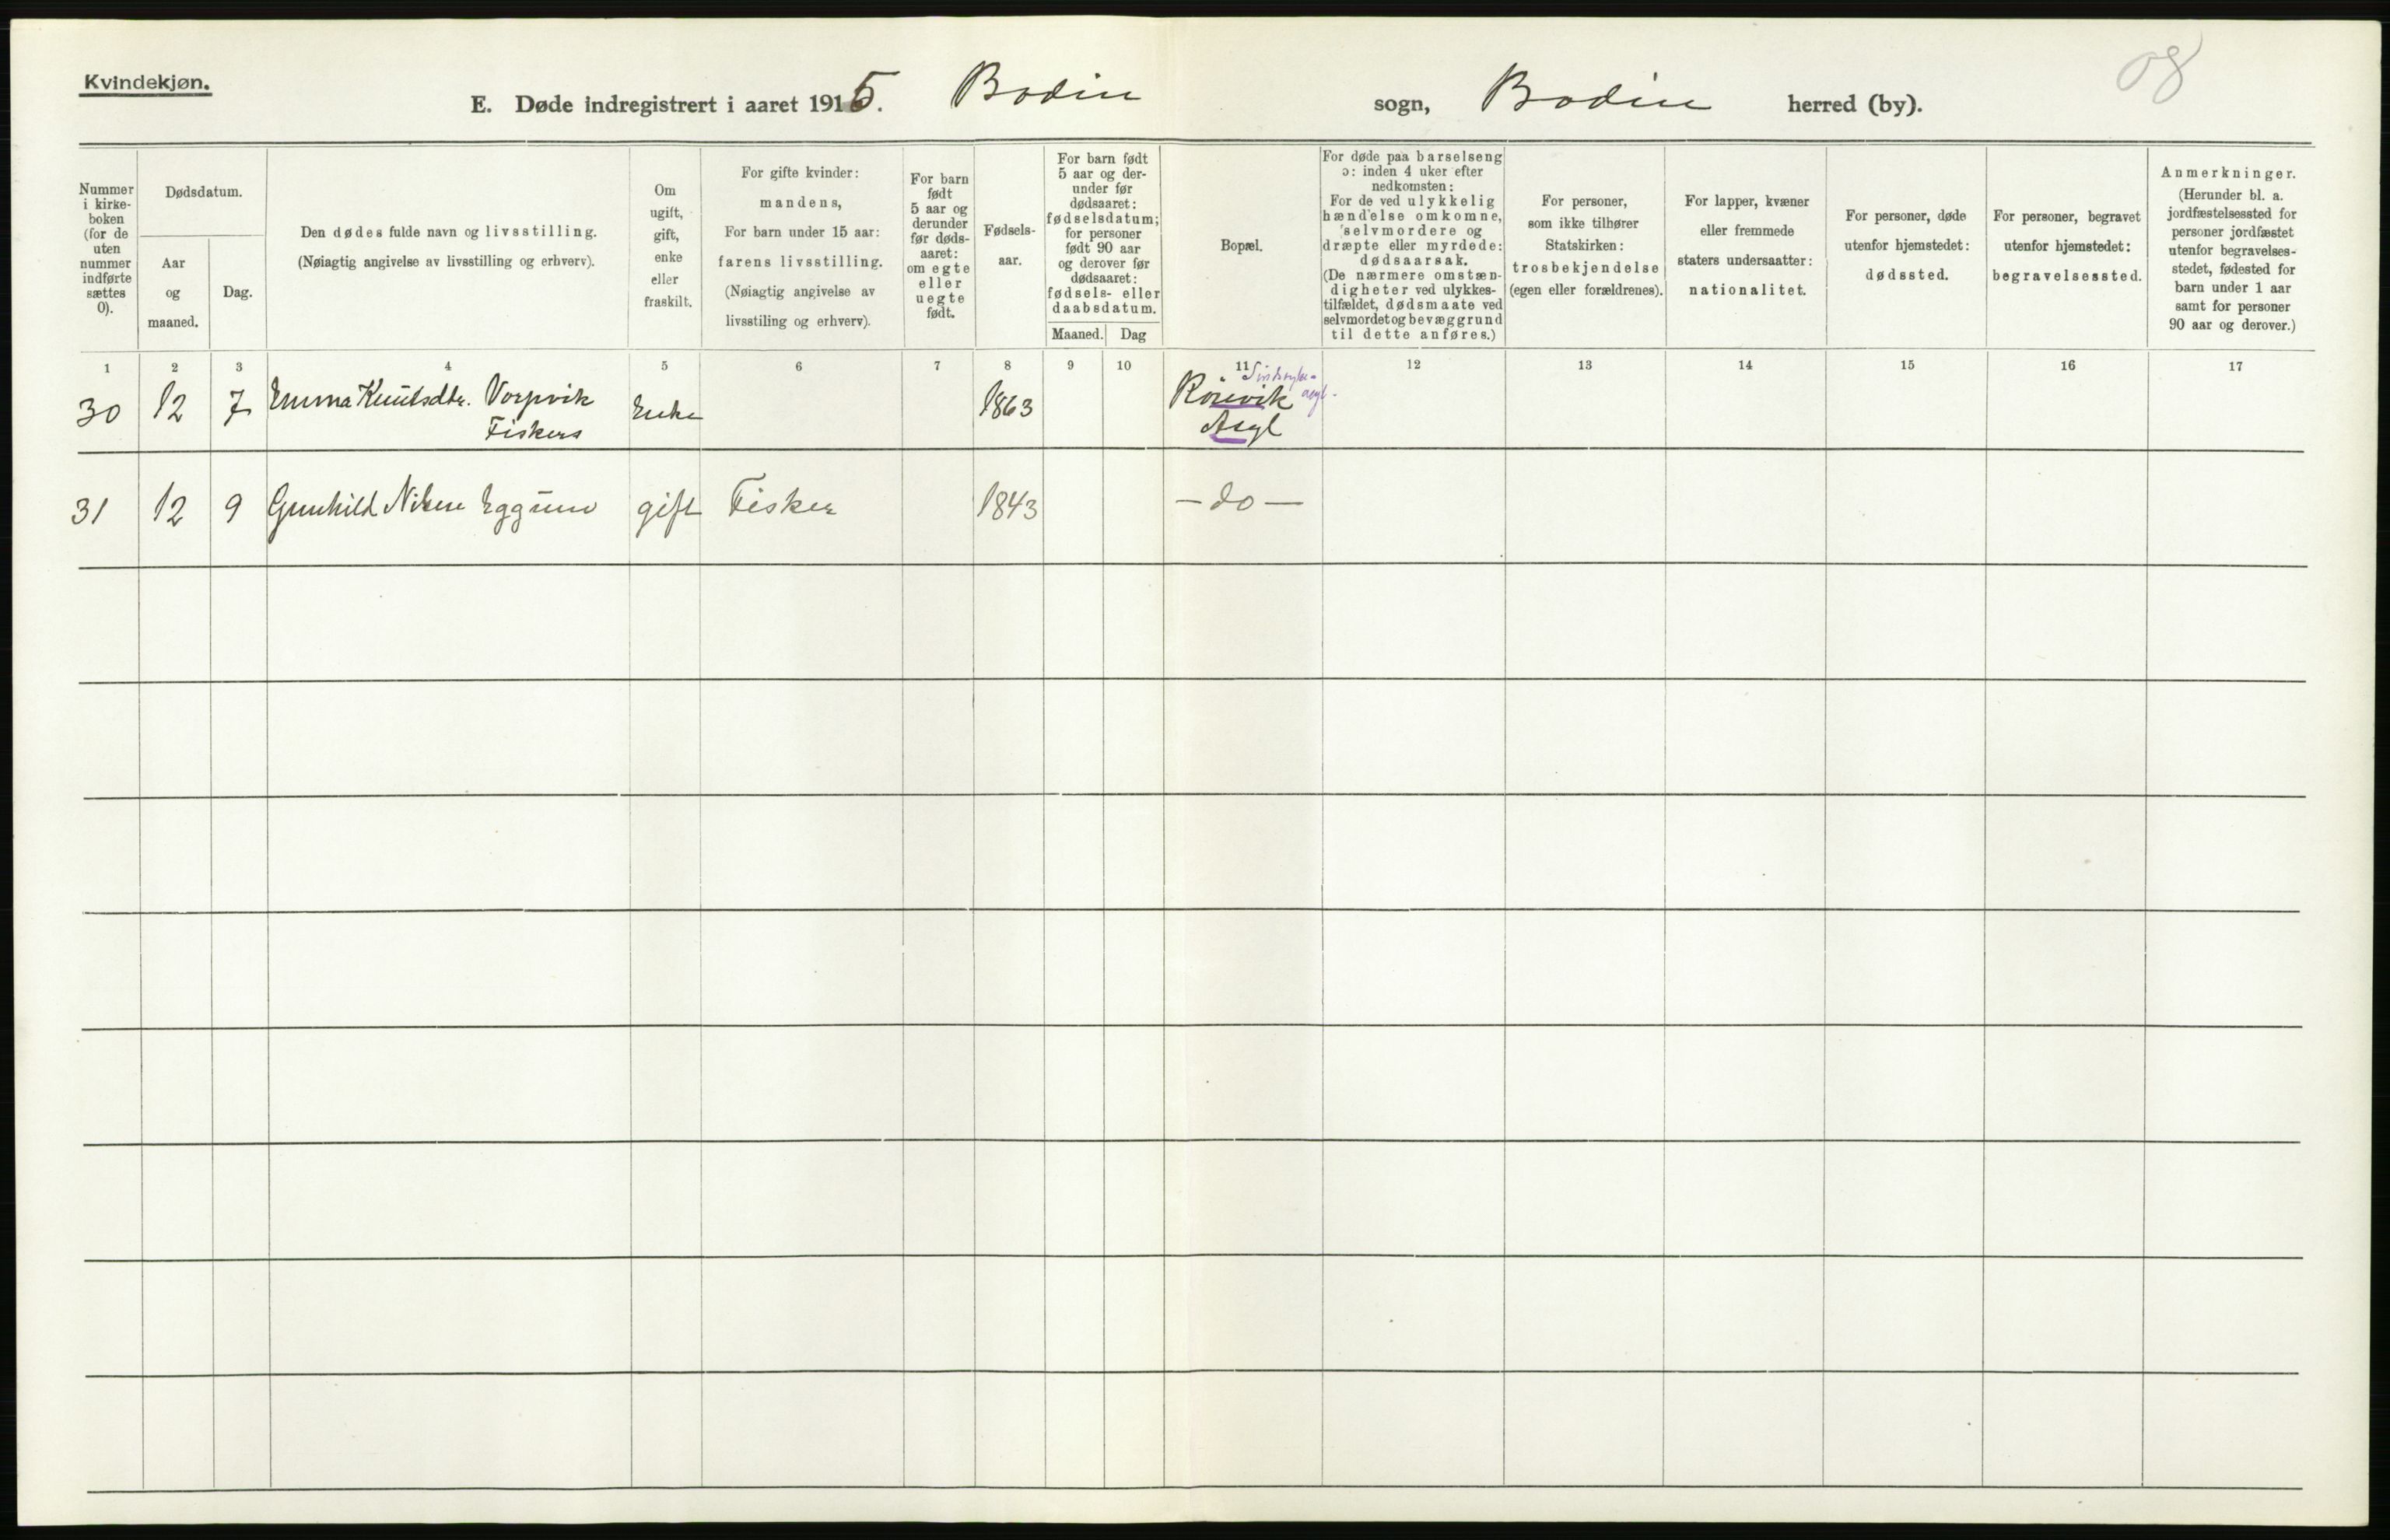 Kvindekjøn.
E. Døde indregistrert i aaret 1915. Bodin sogn, Bodin herred (by).
08
Nummer
i kirke-
boken
(for de
uten
nummer
indførte
sættes
0).
Dødsdatum.
Aar
og
maaned.
Dag.
Den dødes fulde navn og livsstilling.
(Nøiagtig angivelse av livsstilling og erhverv).
Om
ugift,
gift,
enke
eller
fraskilt.
For gifte kvinder:
mandens,
For barn under 15 aar:
farens livsstilling.
(Nøiagtig angivelse av
livsstiling og erhverv).
For barn
født
5 aar og
derunder
før døds-
aaret:
om egte
eller
uegte
født.
Fødsels-
aar.
For barn født
5 aar og der-
under før
dødsaaret:
fødselsdatum;
for personer
født 90 aar
og derover før
dødsaaret:
fødsels- eller
daabsdatum.
Maaned. Dag
Bopæl.
For døde paa barselseng
ɔ: inden 4 uker efter
nedkomsten:
For de ved ulykkelig
hændelse omkomne,
selvmordere og
dræpte eller myrdede:
dødsaarsak.
(De nærmere omstæn-
digheter ved ulykkes-
tilfældet, dødsmaate ved
selvmordet og bevæggrund
til dette anføres.)
For personer,
som ikke tilhører
Statskirken:
trosbekjendelse
(egen eller forældrenes).
For lapper, kvæner
eller fremmede
staters undersaatter:
nationalitet.
For personer, døde
utenfor hjemstedet:
dødssted.
For personer, begravet
utenfor hjemstedet:
begravelsessted.
Anmerkninger.
(Herunder bl. a.
jordfæstelsessted for
personer jordfæstet
utenfor begravelses-
stedet, fødested for
barn under 1 aar
samt for personer
90 aar og derover.)
1 2 3 4 5 6 7 8 9 10 11 12 13 14 15 16 17
Sindssyke-
asyl.
30 12 7 Emma Knutsdtr. Vorpvik Enke 1863 Rønvik
Fiskers Asyl
31 12 9 Gunhild Nilsen Eggum gift Fisker 1843 - do -